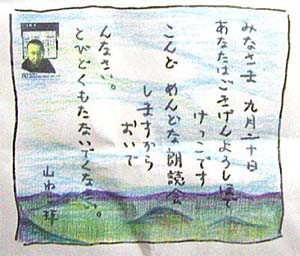 みなさま 九月二十日
あなたはごきげんよろしいほで
けっこです
こんど めんどな朗読会
しますから
おいで
んなさい。
とびどぐもたないでくなさい。
山ねこ 拝